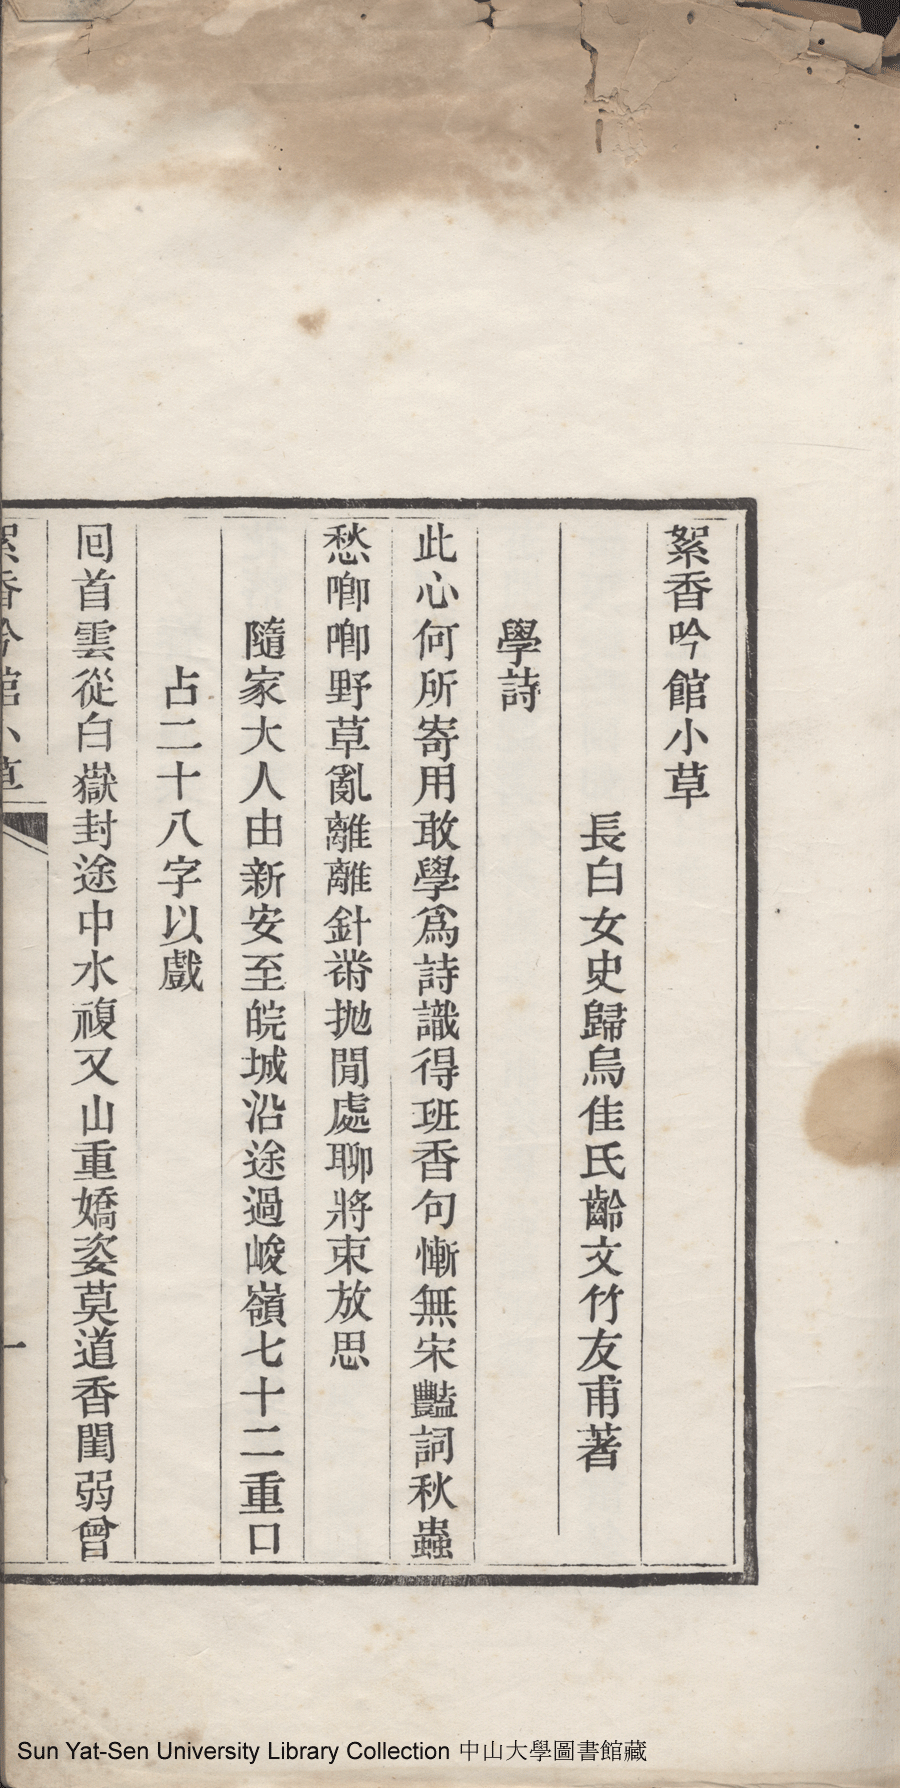 絮香吟館小草
長白女史歸烏佳氏齡文竹友甫著
學詩
此心何所寄用敢學爲詩識得班香句慚無宋豔詞秋蟲
愁唧唧野草亂離離針黹拋閒處聊將束放思
隨家大人由新安至皖城沿途過峻嶺七十二重口
占二十八字以戲
回首雲從白嶽封途中水複又山重嬌姿莫道香閨弱曾
絮香吟館小草
一
Sun Yat-Sen University Library Collection 中山大學圖書館藏